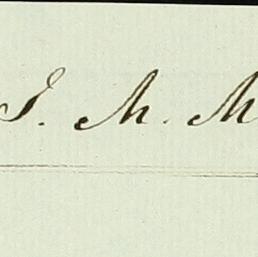 J. M. M